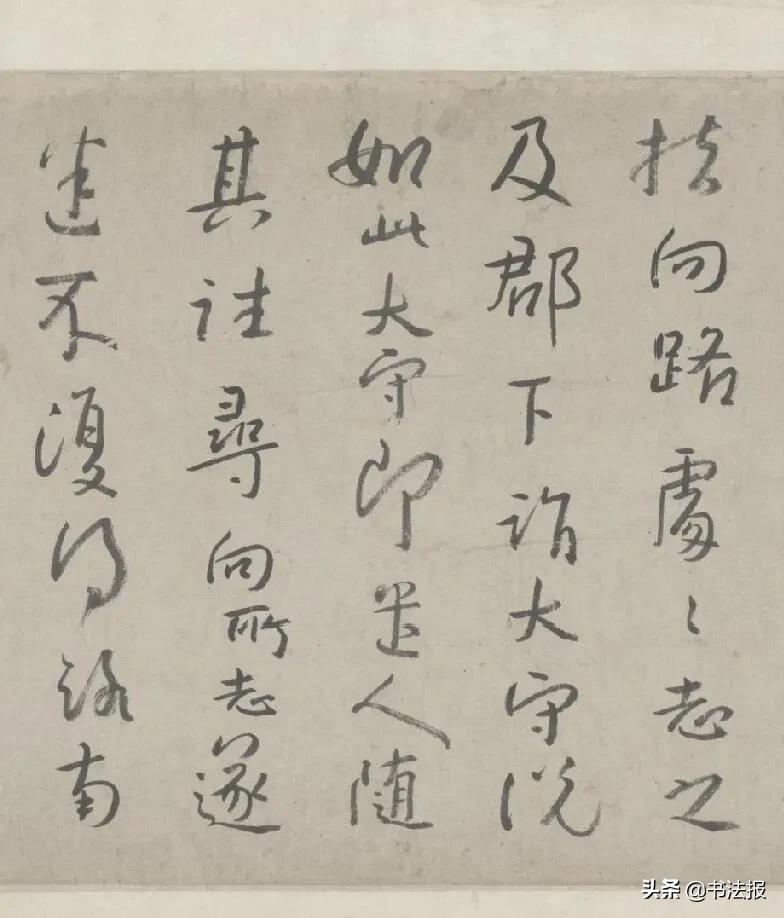 扶向路處々志之
及郡下詣大守説
如此大守即遣人隨
其往尋向所志遂
迷不復得路南
头条 @书法报